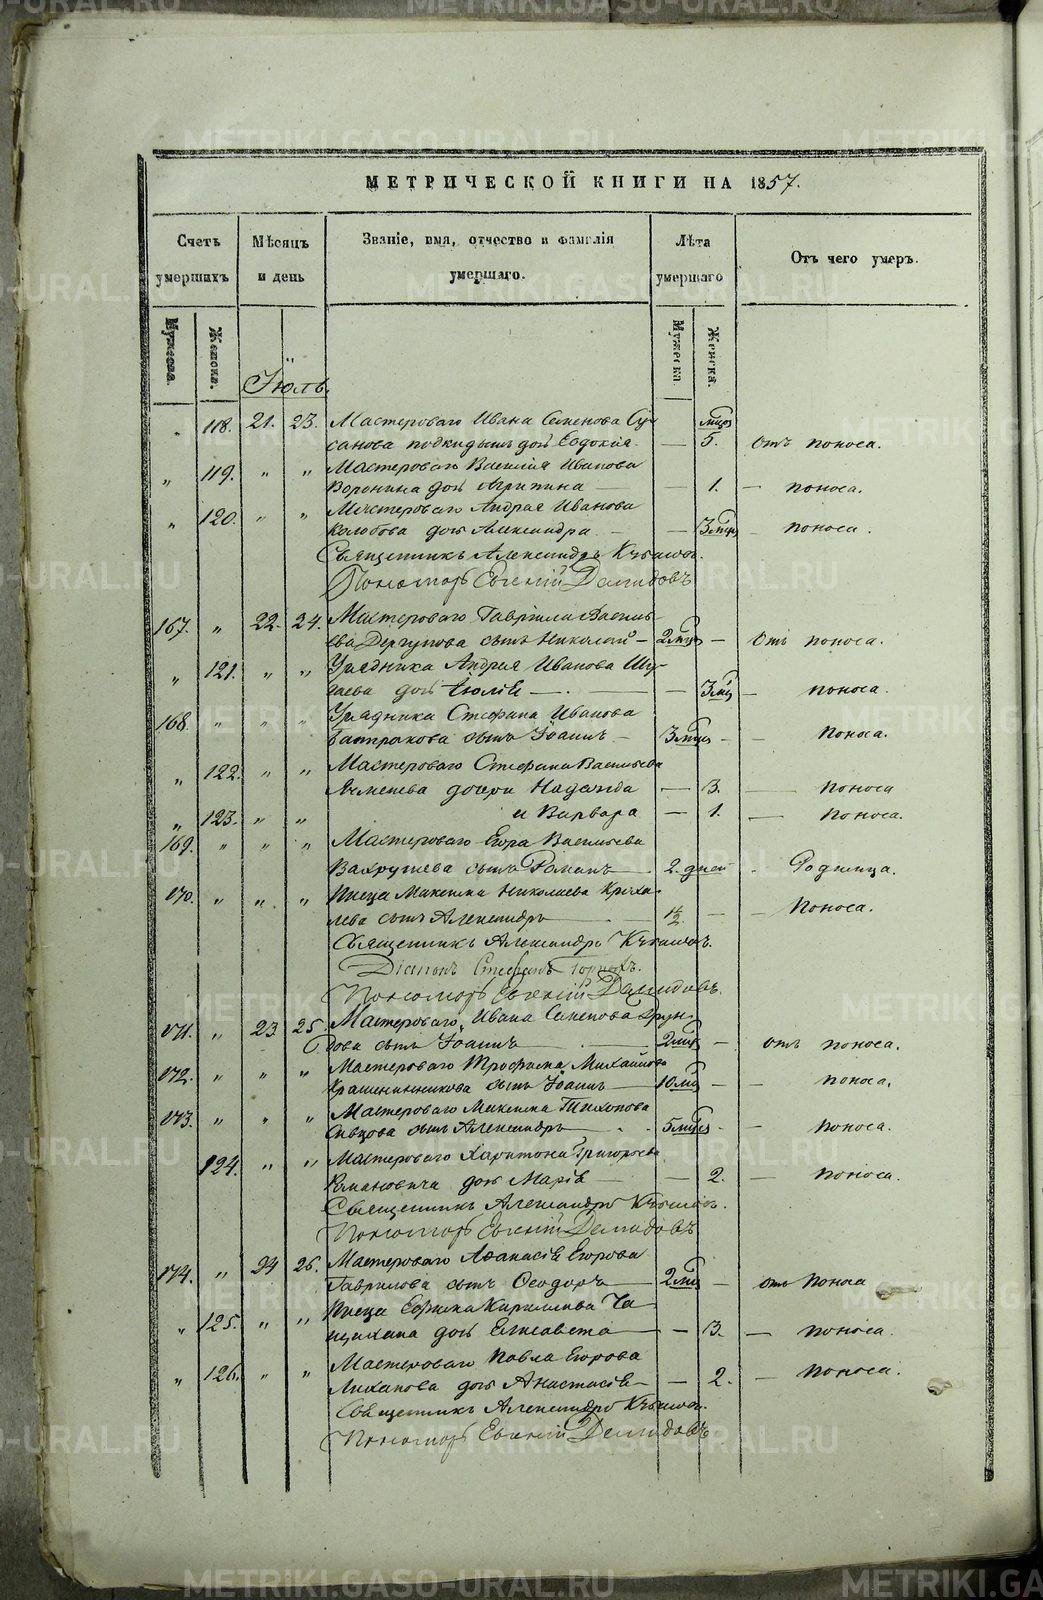 МЕТРИЧЕСКОЙ КНИГИ НА 1857.
Счетъ умершихъ
Мѣсяцъ и день
Званіе, имя, отчество и фамилія умершаго.
Лѣта умершаго
Отъ чего умеръ.
Мужеска.
Женска.
Мужеска
Женска.
Іюль.
118. 21. 23. Мастероваго Ивана Семенова Су- мцов
санова подкидышъ дочь Евдокія. — 5. отъ поноса.
„ 119. „ „ Мастероваго Василія Иванова
Воронина дочь Агрипина — — 1. — поноса.
„ 120. „ „ Мастероваго Андрея Иванова
Колобова дочь Александра — — 3 мцов — поноса.
Священникъ Александръ
Пономарь Евгеній Демидовъ
167. „ 22. 24. Мастероваго Гавріила Василь-
ева сынъ Николай — 2 мцов — Отъ поноса.
„ 121. „ „ Урядника Андрея Иванова
дочь Юлія — — 3 мц — поноса.
168. „ „ „ Урядника Стефана Иванова
сынъ Іоаннъ — 3 мцов — — Поноса.
„ 122. „ „ Мастероваго Стефана Васильева
дочери Надежда — 3. — поноса
„ 123. „ „ и Варвара — 1. — поноса.
169. „ „ „ Мастероваго Егора Васильева
Вахрушева сынъ Романъ — 2. дней . Родимца.
170. „ „ „ Писца Максима Николаева
лева сынъ Александръ — 1 1/2 — — Поноса.
Священникъ Александръ
Діаконъ Стефанъ
Пономарь Евгеній Демидовъ.
171. „ 23. 25. Мастероваго Ивана Семенова
сынъ Іоаннъ — 2 мцов — отъ поноса.
172. „ „ „ Мастероваго Трофима Михайлова
Крашенинникова сынъ Іоаннъ — 10 мц — — поноса.
173. „ „ „ Мастероваго Максима Тихонова
Сивцова сынъ Александръ — 5 мцов — — поноса.
124. „ „ Мастероваго Харитона Григорьева
Романовича дочь Марія — — 2. — поноса.
Священникъ Александръ
Пономарь Евгеній Демидовъ
174. „ 24 26. Мастероваго Аѳанасія Егорова
Гаврилова сынъ Ѳеодоръ — 2 мц — отъ Поноса
„ 125. „ „ Писца Ефима Кирилова Ча-
щихина дочь Елисавета — — 3. — поноса.
„ 126. „ „ Мастероваго Павла Егорова
дочь Анастасія — — 2. — поноса.
Священникъ Александръ
Пономарь Евгеній Демидовъ
METRIKI.GASO-URAL.RU